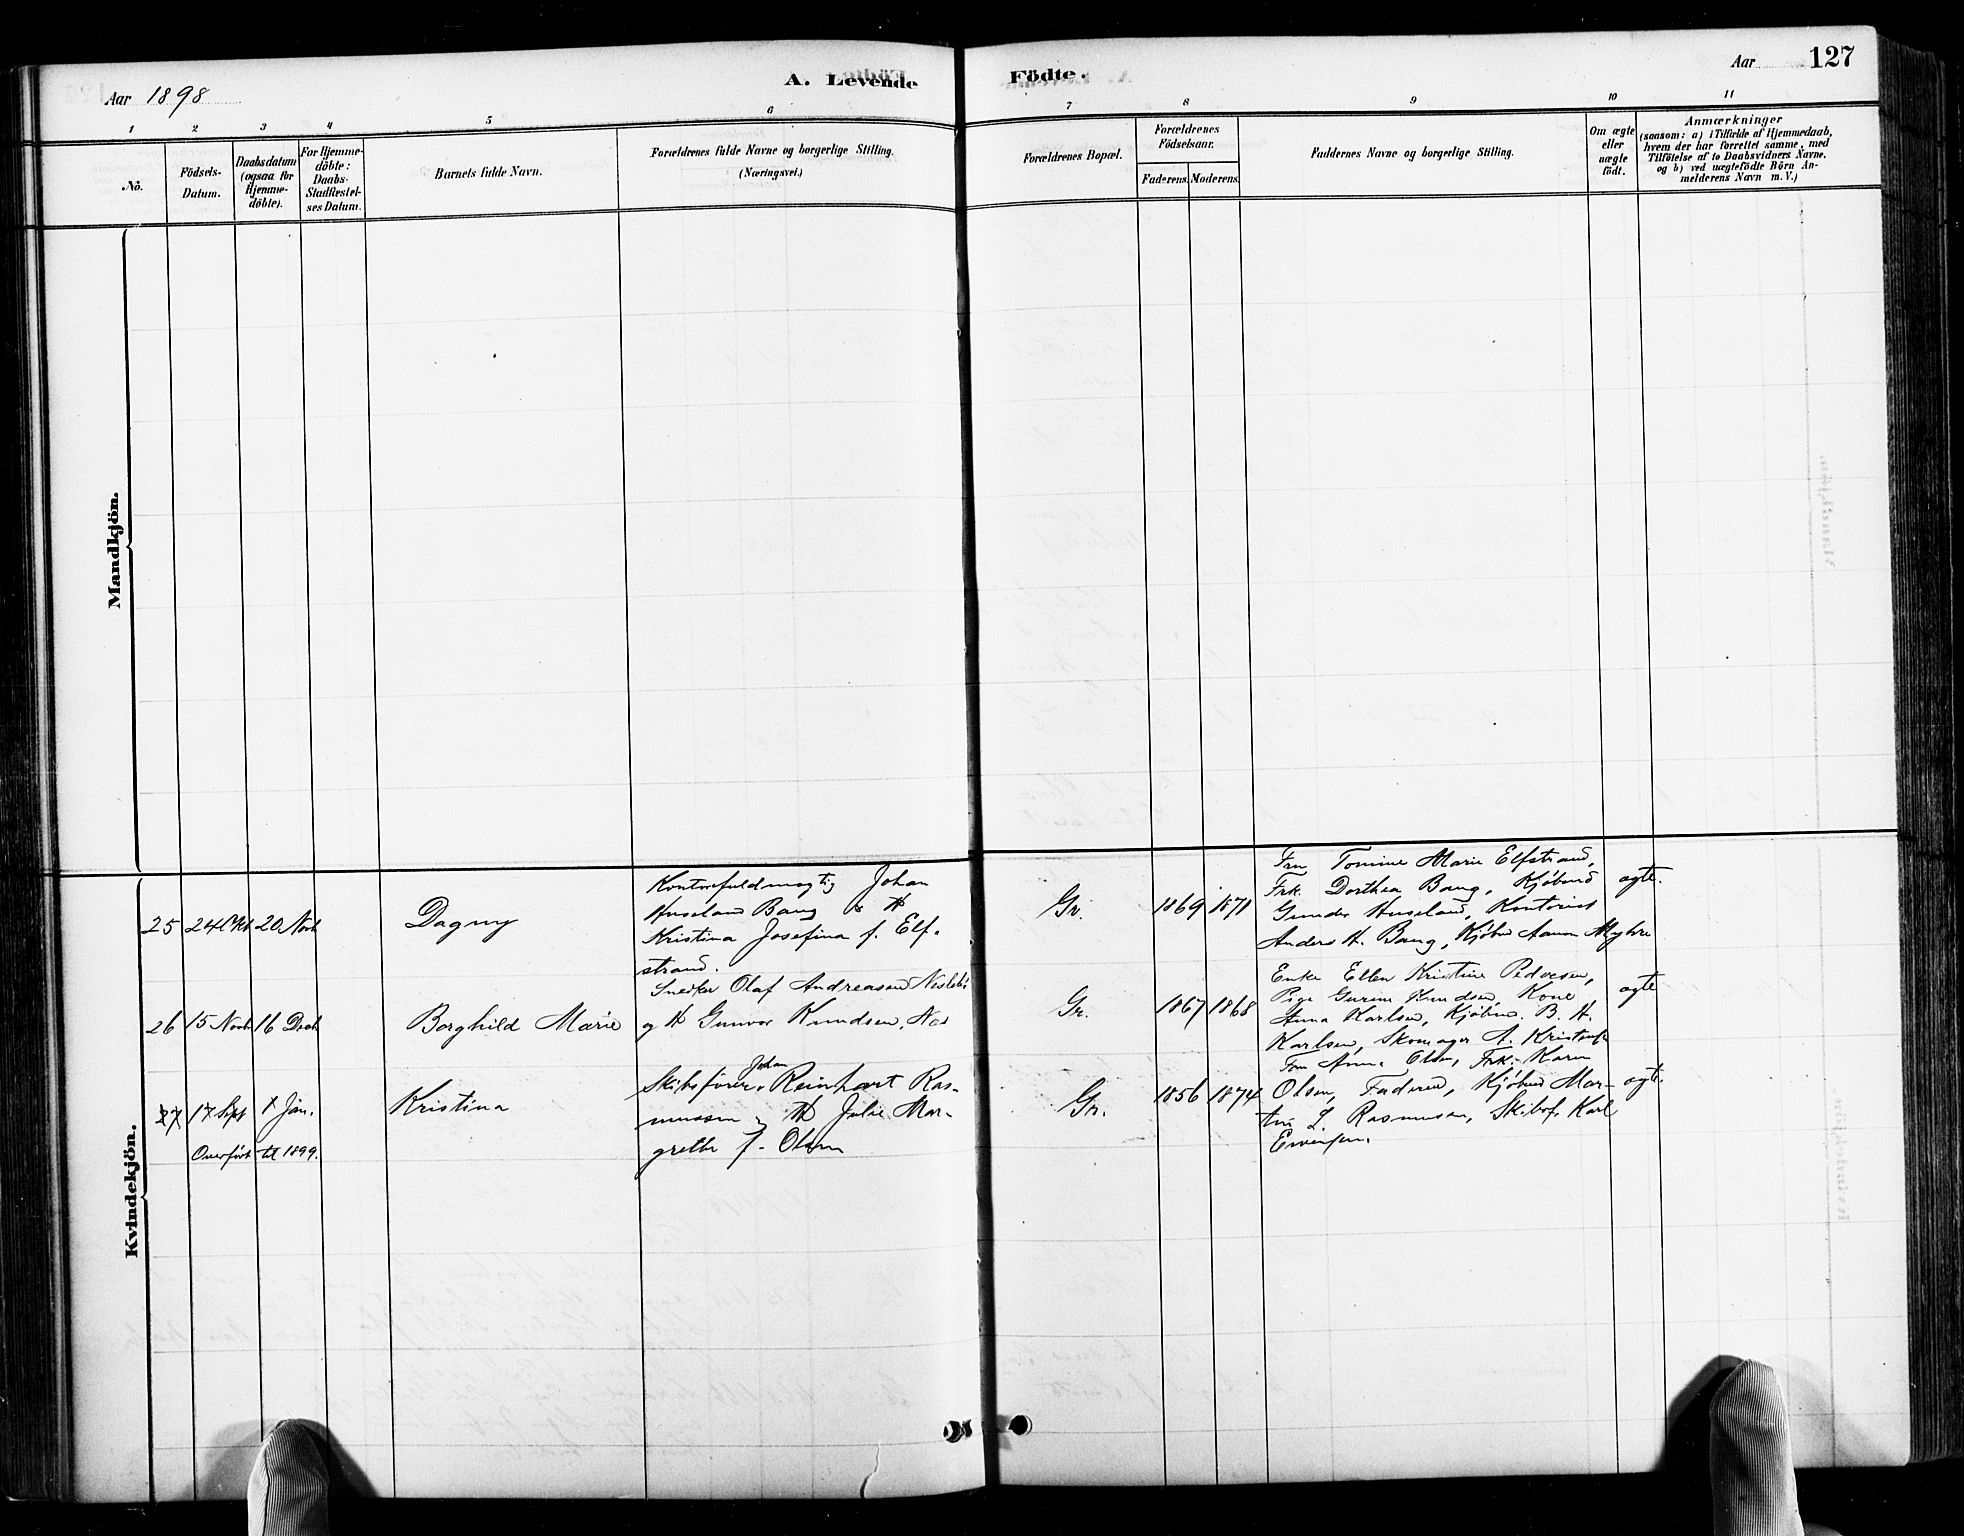 Aar 1898
A. Levende
Födte.
Aar
127
1 2 3 4 5 6 7 8 9 10 11
No.
Födsels-
Datum.
Daabsdatum
(ogsaa for
Hjemme-
döbte).
For Hjemme-
döbte:
Daabs-
Stadfæstel-
ses Datum.
Barnets fulde Navn.
Forældrenes fulde Navne og borgerlige Stilling.
(Næringsvei.)
Forældrenes Bopæl.
Forældrenes
Födselsaar.
Faderens. Moderens.
Faddernes Navne og borgerlige Stilling.
Om ægte
eller
uægte
født.
Anmærkninger
(saasom: a) i Tilfælde af Hjemmedaab,
hvem der har forrettet samme, med
Tilföielse af to Daabsvidners Navne.
og b) ved uægtefödte Börn An-
melderens Navn m. V.)
Mandkjön.
Kvindekjön.
25 24 Okt 20 Novb
Dagny
Kontorfuldmægtig Johan
Huseland Bang & H
Kristina Josefina f. Elf-
strand.
Gr.
1869 1871
Fru Tomine Marie Elfstrand,
Frk. Dorthea Bang, Kjöbmd
Gunder Huseland, Kontorist
Anders H. Bang, Kjöbmd Aanon Myhre
ægte.
26 15 Novb 16 Decb
Borghild Marie
Snedker Olaf Andreasen
og H Gunvor Knudsen,
Gr.
1867 1868
Enke Ellen Kristine Pedersen,
Pige Gurine Knudsen, Kone
Anna Karlsen, Kjöbmd. B. H.
Karlsen, Skomager A.
ægte
27 17 Sept 1 Jan.
Overfört til 1899.
Kristina
Johan
Skibsförer Reinhart Ras-
mussen & H Julie Mar-
grethe f. Olsen
Gr.
1856 1874
Fru Anna Olsen, Frk. Karen
Olsen, Faderen, Kjöbmd Mar-
tin L. Rasmussen, Skibsf. Karl
ægte.